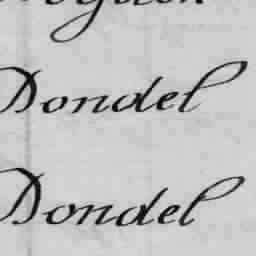 Dondel
Dondel